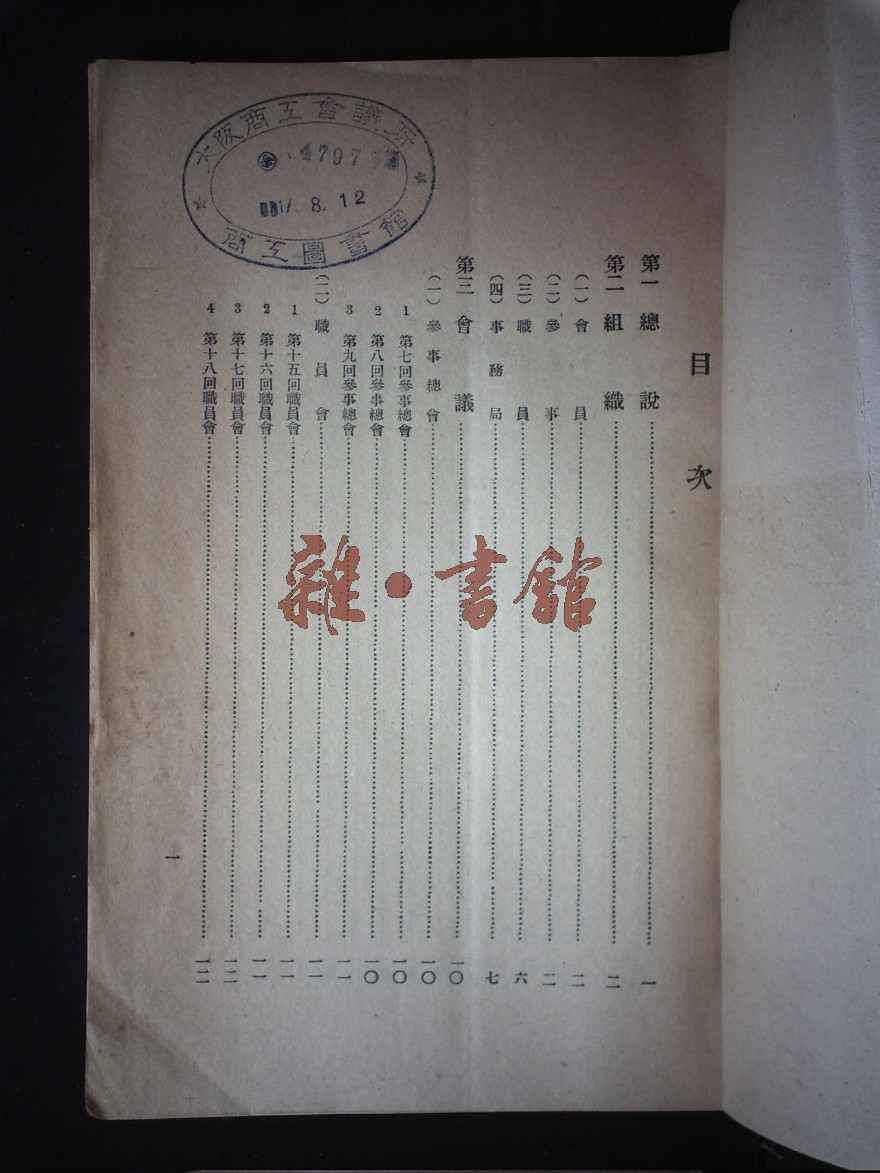 目次
第一 總說 一
第二 組織 二
（一）會員 二
（二）參事 二
（三）職員 六
（四）事務局 七
第三 會議 一〇
（一）參事總會 一〇
1 第七回參事總會 一〇
2 第八回參事總會 一〇
3 第九回參事總會 一一
（二）職員會 一一
1 第十五回職員會 一一
2 第十六回職員會 一一
3 第十七回職員會 一二
4 第十八回職員會 一二
一
大阪商工會議所
4797
17. 8. 12
商工圖書館
雜·書館